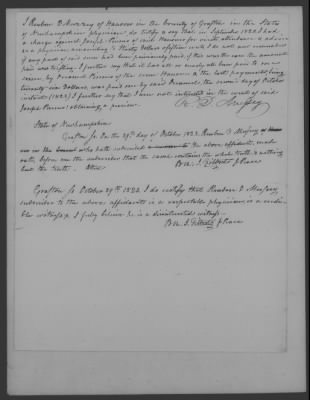 I Reuben D. Mussey of Hanover in the County of Grafton in the State
of Newhampshire physician do certify & say that in September 1820 I had
a charge against Joseph Pierce of said Hanover for visits attendance & advice
as a physician amounting to thirty Dollars & fifteen cents I do not now remember
if any part of said sum had been previously paid, if there was the sum the amount
paid was trifling. I further say that it has all or nearly all been paid to me
since, by Pierce of the same Hanover & the last payment, being
twenty six Dollars, was paid me by said the second day of October
instant (1822) I further say that I am not interested in the event of said
Joseph Pierce obtaining a pension.
R. D. Mussey
State of Newhampshire
Grafton Ss On the 29th day of October 1822. Reuben D. Mussey
who hath subscribed the above affidavit, made
oath, before me the subscriber that the same contains the whole truth & nothing
but the truth. Attest
Ben. J. Gilbert J. Peace
Grafton Ss October 29th 1822 I do certify that Reuben D Mussey
subscriber to the above affidavit is a respectable physician, is a credi-
ble witness & I fully believe he is a disinterested witness.
Ben. J. Gilbert J Peace